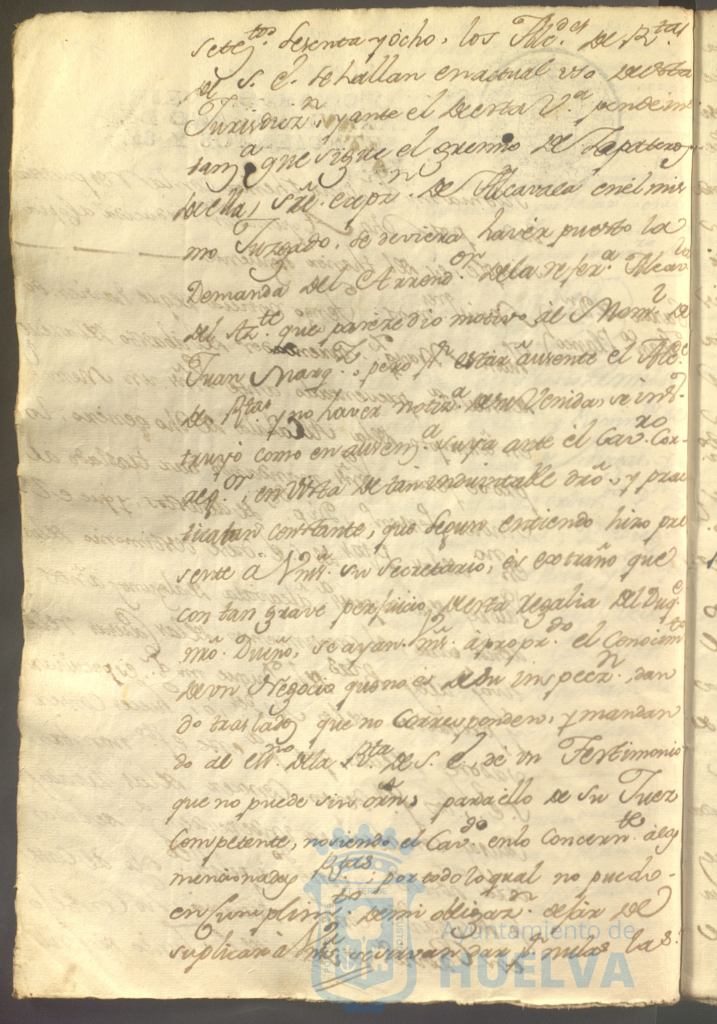 setez.tos sesenta y ocho, los Alc.des de R.tas
de S. E. se hallan en actual uso de esta
Jurisdiz.n, y ante el de esta V.a pende ins
tanz.a que sigue el gremio de Zapateros
de ella, sre. exapz.n de Alcavala en el mis
mo Juzgado, se deviera haver puesto la
Demanda del Arrend.or de la refer.a Alcav.la
del Az.te que parece dio motivo al Nom.to de
Juan Marq.z, pero p.r estar ausente el Alc.e
de R.tas y no haver notiz.a de su Venida, se ins-
truyó como en ausenz.a suya ante el Cav.ro Cor-
reg.or, en vista de tan indubitable dro. y prac
tica tan constante, que segun entiendo hizo pre
sente a Vms. su Secretario, es extraño que
con tan grave perjuicio de esta regalia del Duq.e
mro. Dueño, se ayan Vms. apropr.do el Conocim.to
de un Negocio que no es de su inspecz.n, dan
do traslados que no corresponden, y mandan
do al Es.no de la R.ta de S. E. dé un Testimonio
que no puede sin orn. para ello de su Juez
Competente, no siendo el Cav.do en lo concern.te a las
mencionadas R.tas; por todo lo qual no puedo
en cumplim.to de mi obligaz.n dejar de
suplicar a Vms. se sirvan dar p.r nulas las
Ayuntamiento de
HUELVA